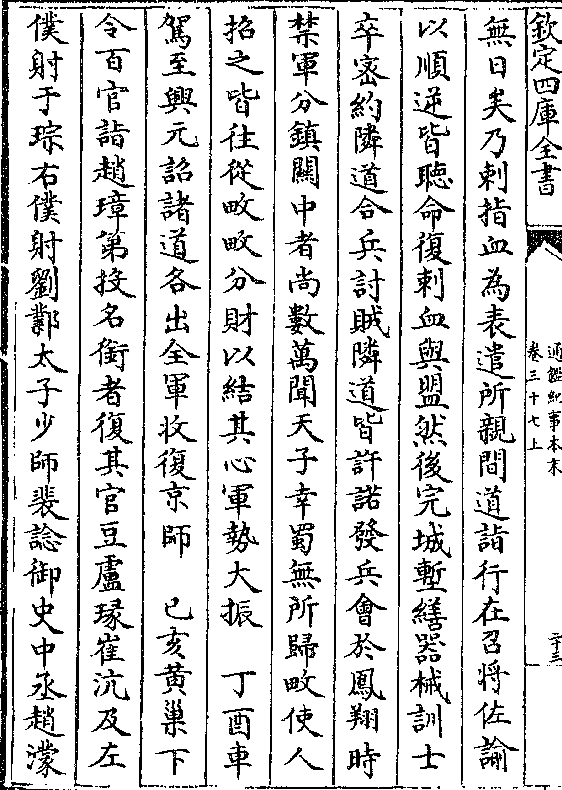 欽定四庫全書
通鑑紀事本末
卷三十七上
二十三
無日矣乃刺指血為表遣所親間道詣行在召將佐諭
以順逆皆聽命復刺血與盟然後完城塹繕器械訓士
卒密約隣道合兵討賊隣道皆許諾發兵會於鳳翔時
禁軍分鎮關中者尚數萬聞天子幸蜀無所歸畋使人
招之皆往從畋畋分財以結其心軍勢大振　丁酉車
駕至興元詔諸道各出全軍收復京師　己亥黃巢下
令百官詣趙璋第投名銜者復其官豆盧瑑崔沆及左
僕射于琮右僕射劉鄴太子少師裴諗御史中丞趙濛